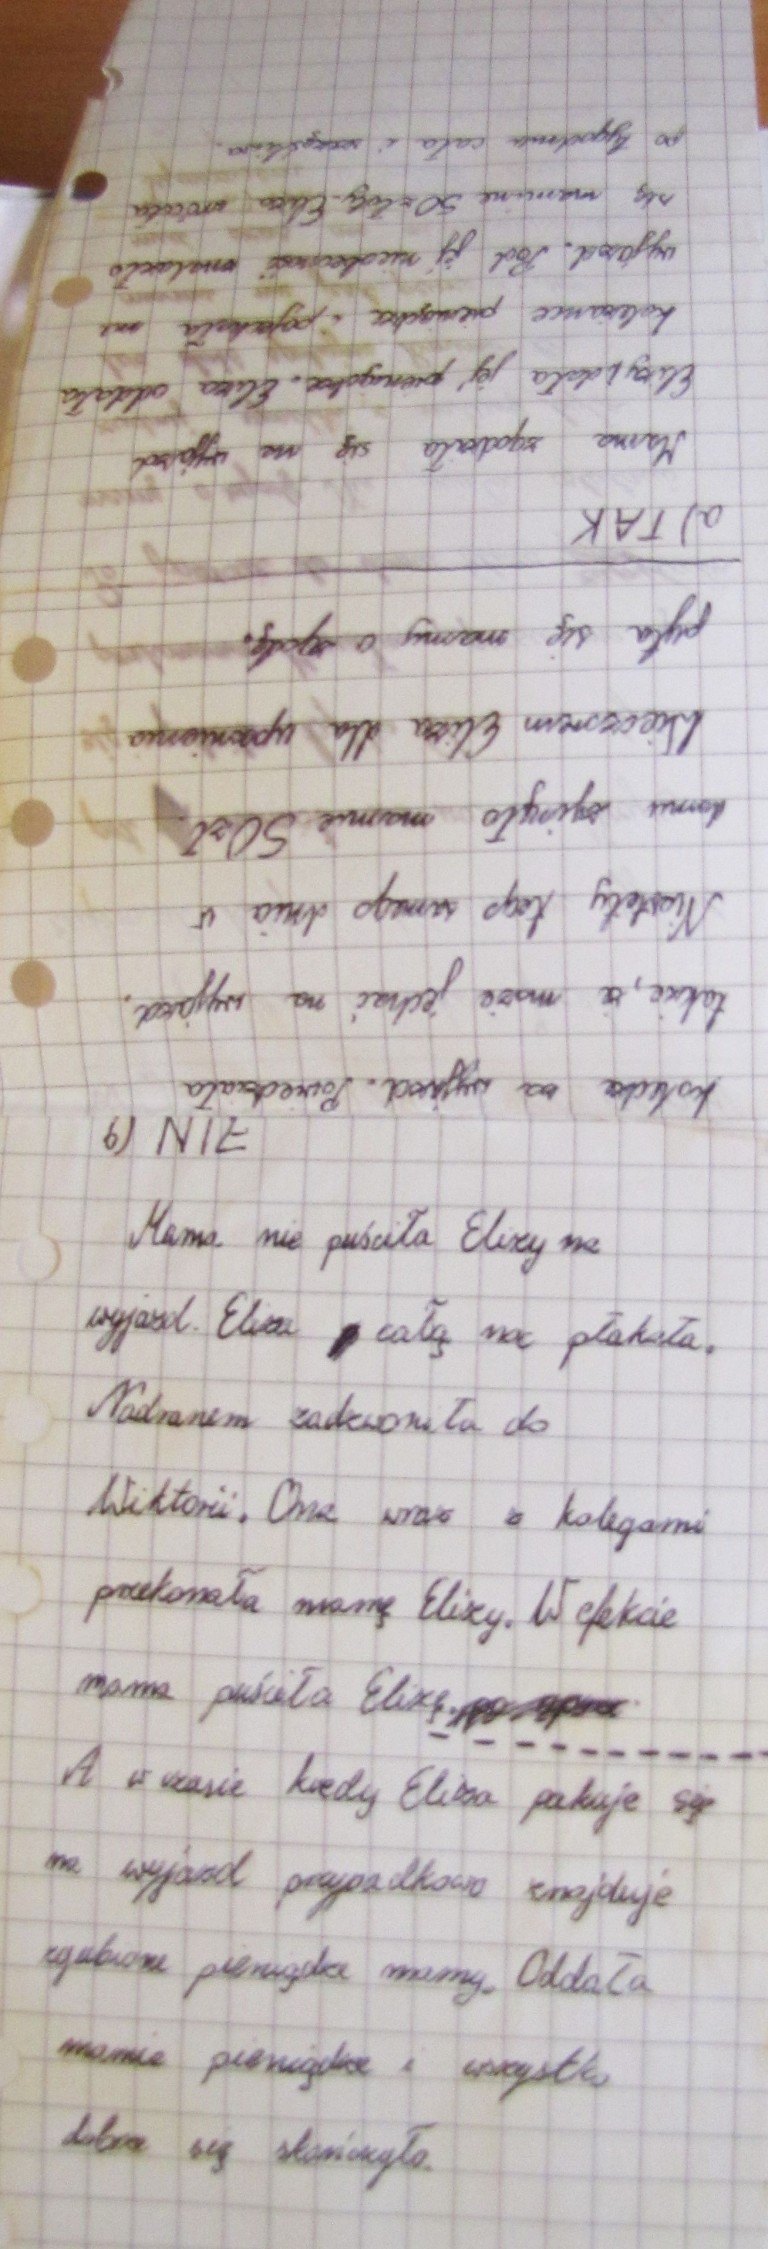 koleżka za wyjazd. Powiedziała
także, że może jechać na wyjazd.
Niestety tego samego dnia w
domu zginęło mamie 50 zł.
Wieczorem Eliza dla upewnienia
pyta się mamy o zgodę.
a) TAK
Mama zgodziła się na wyjazd
Elizy i dała jej pieniądze. Eliza oddała
koleżance pieniądze i pojechała na
wyjazd. Pod jej nieobecność znalazło
się mamine 50 złoty. Eliza wróciła
po tygodniu cała i szczęśliwa.
b) NIE
Mama nie puściła Elizy na
wyjazd. Eliza całą noc płakała.
Nadranem zadzwoniła do
Wiktorii. Ona wraz z kolegami
przekonała mamę Elizy. W efekcie
mama puściła Elizę.
A w czasie kiedy Eliza pakuje się
na wyjazd przypadkowo znajduje
zgubione pieniądze mamy. Oddała
mamie pieniądze i wszystko
dobrze się skończyło.